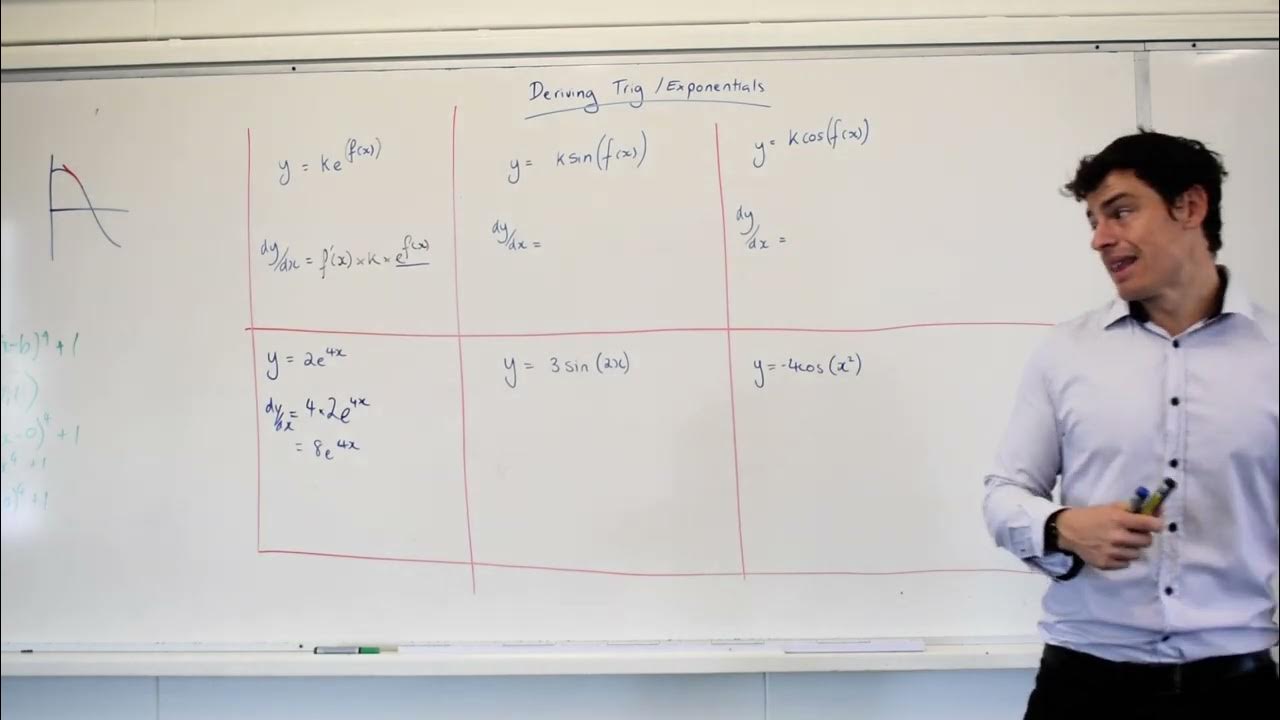 Deriving Trig / Exponentials
y = ke^(f(x))
dy/dx = f'(x) × k × e^f(x)
y = k sin(f(x))
dy/dx =
y = k cos(f(x))
dy/dx =
y = 2e^4x
dy/dx = 4 × 2e^4x
= 8e^4x
y = 3 sin (2x)
y = -4cos (x²)
-b)^4 + 1
-0)^4 + 1
^4 + 1
)^4 + 1